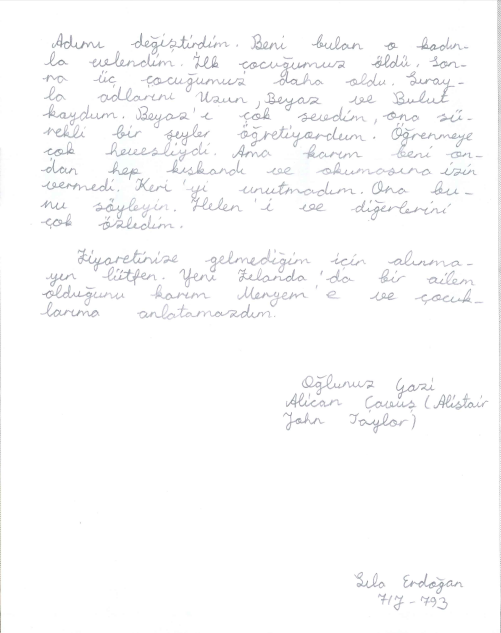 Adımı değiştirdim. Beni bulan o kadın-
la evlendim. İlk çocuğumuz öldü. Son-
ra üç çocuğumuz daha oldu. Sıray-
la adlarını Uzun, Beyaz ve Bulut
koydum. Beyaz'ı çok sevdim, ona sü-
rekli bir şeyler öğretiyordum. Öğrenmeye
çok hevesliydi. Ama karım beni on-
dan hep kıskandı ve okumasına izin
vermedi. Keri'yi unutmadım. Ona bu-
nu söyleyin. Helen'i ve diğerlerini
çok özledim.
Ziyaretinize gelmediğim için alınma-
yın lütfen. Yeni Zelanda'da bir ailem
olduğunu karım Meryem'e ve çocuk-
larıma anlatamazdım.
Oğlunuz Gazi
Alican Çavuş (Alistair
John Taylor)
Sıla Erdoğan
717-793